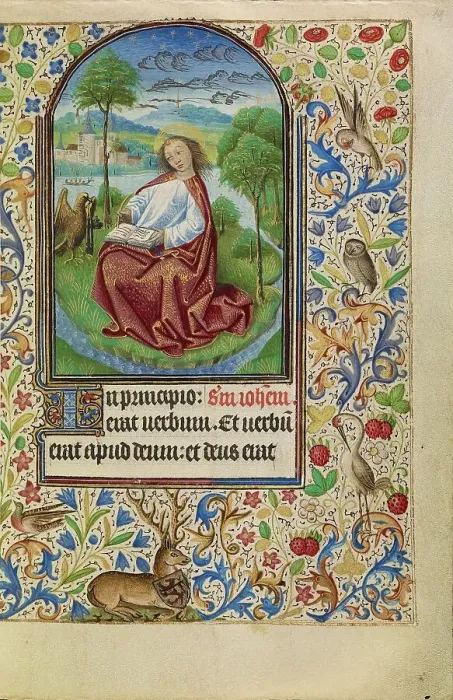 In principio: Sm ioħem.
erat uerbum. Et uerbū
erat apud deum: et deus erat